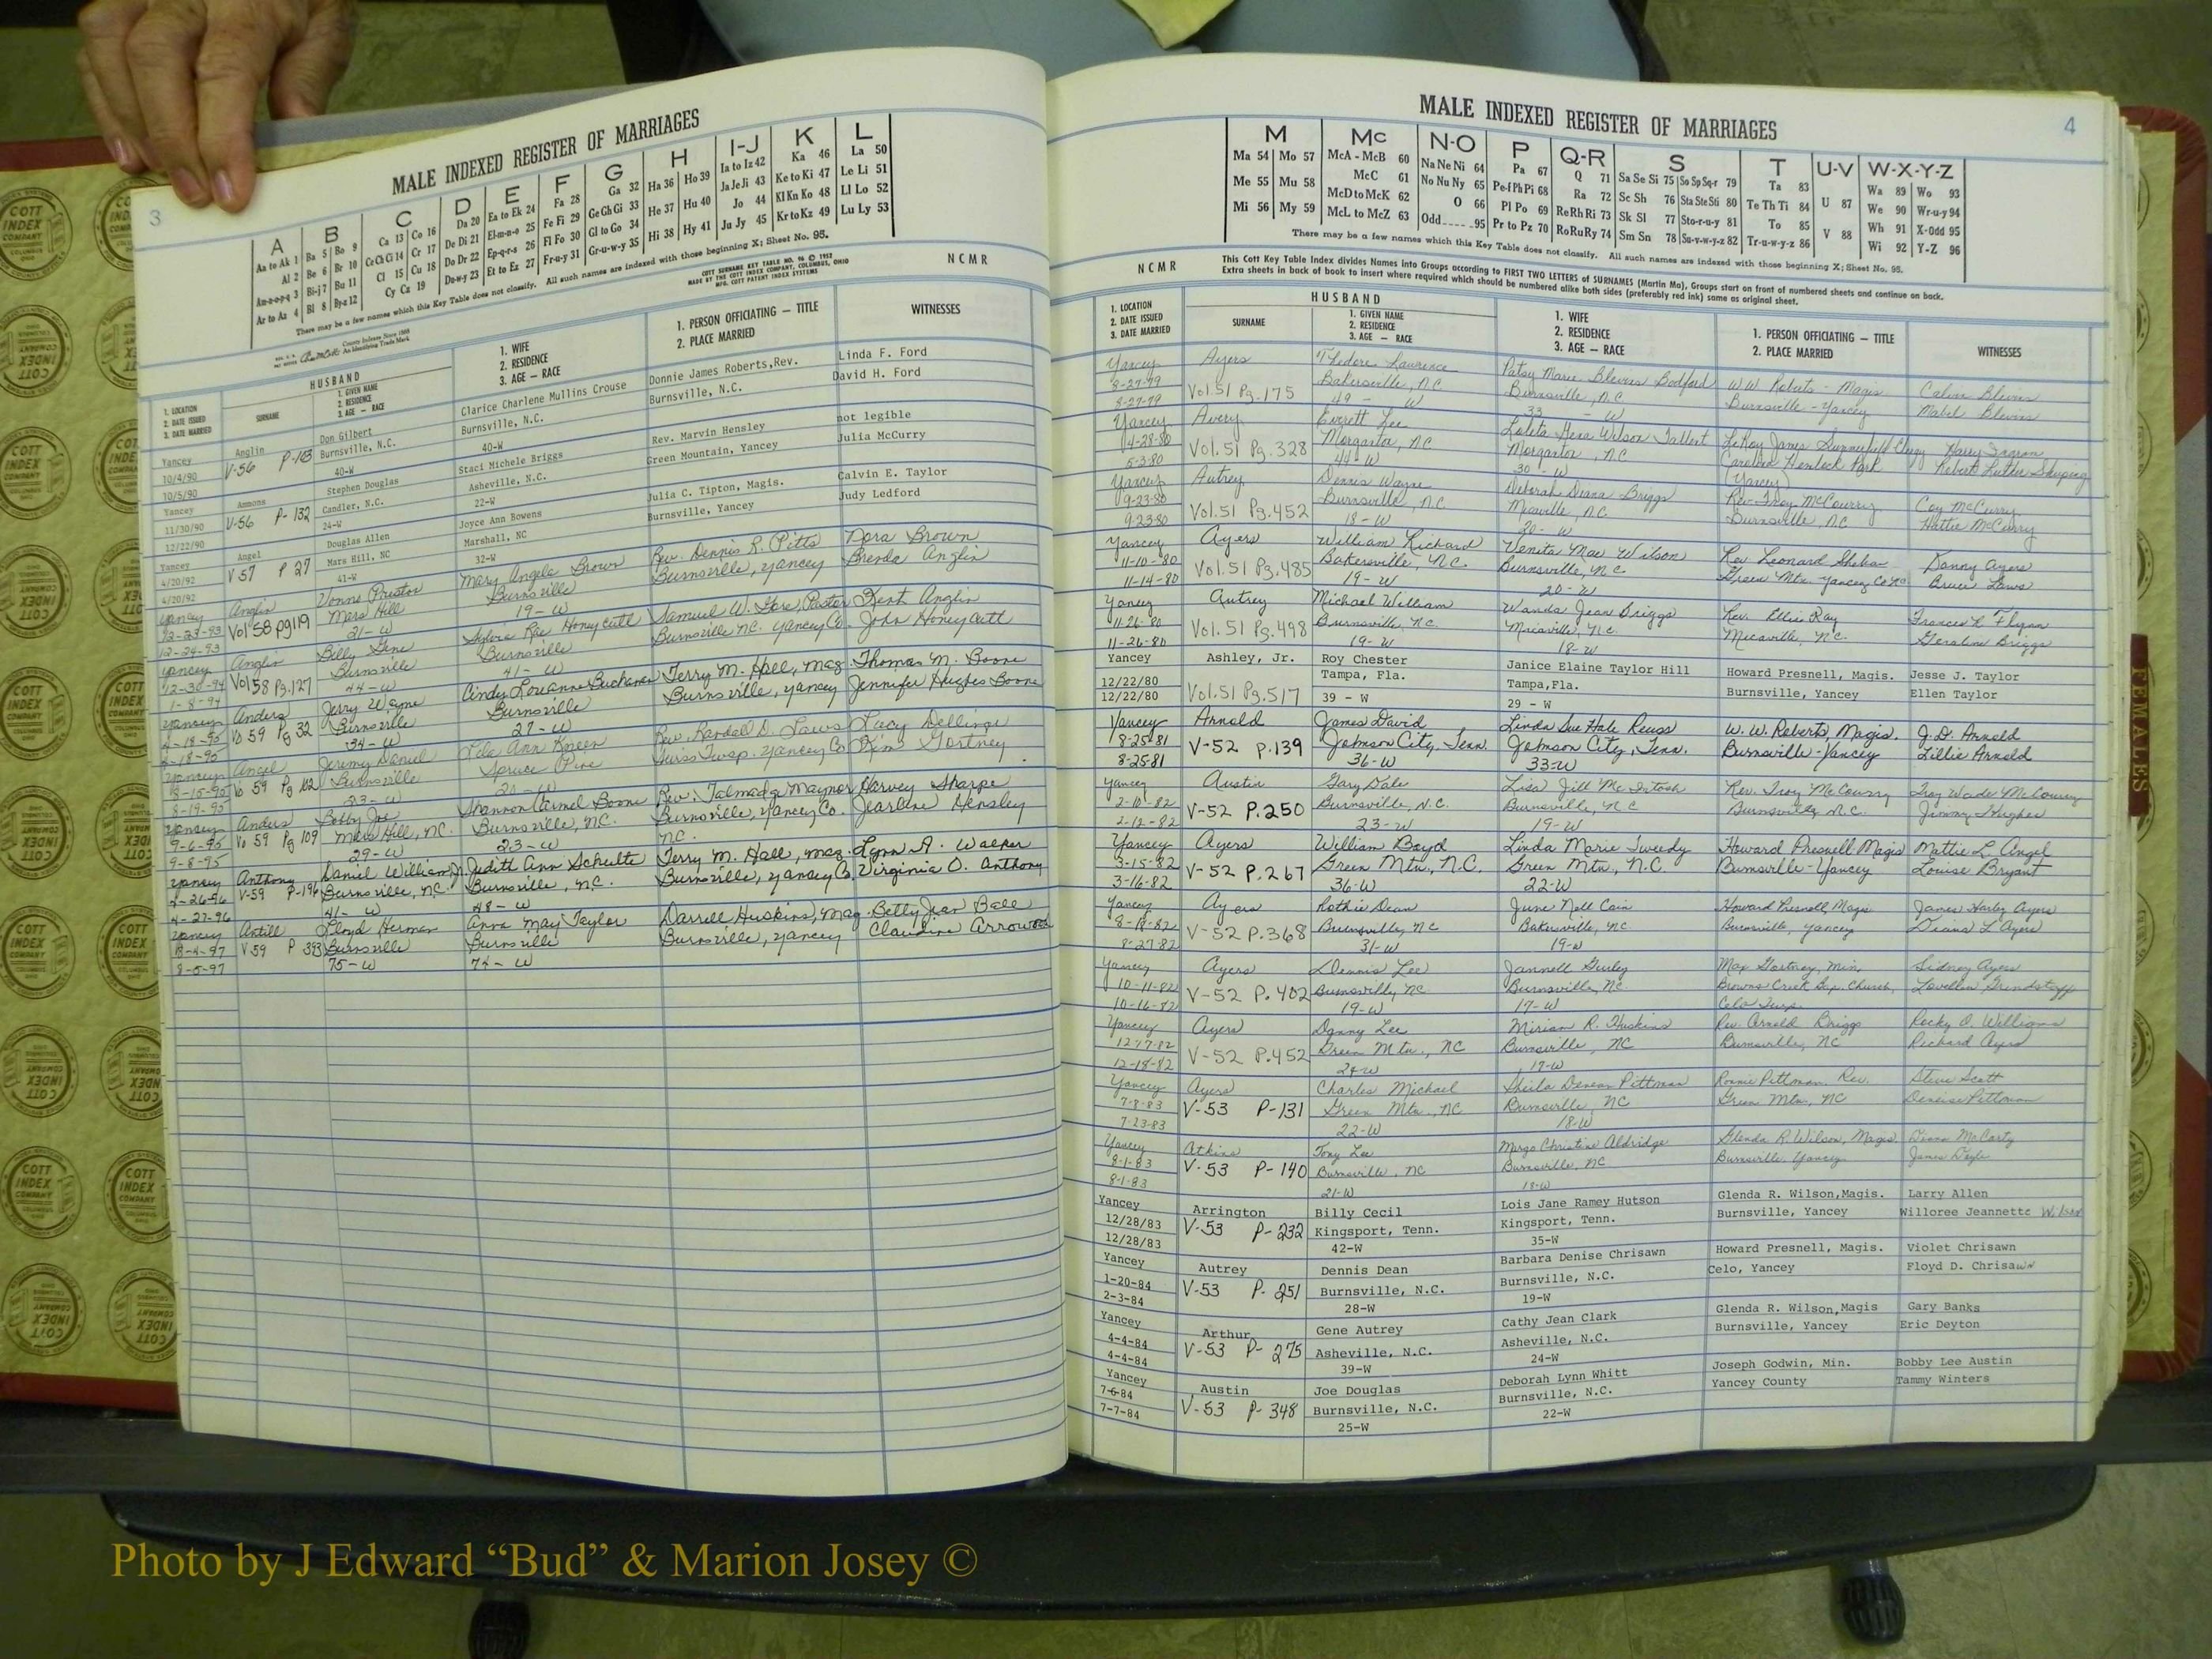 3
MALE INDEXED REGISTER OF MARRIAGES
A B C D E F G H I-J K L
Aa to Ak 1 Ba 5 Bo 9 Ca 13 Co 16 Da 20 Ea to Ek 24 Fa 28 Ga 32 Ha 36 Ho 39 Ia to Iz 42 Ka 46 La 50
Al 2 Be 6 Br 10 Ce Ch Ci 14 Cr 17 De Di 21 El-m-n-o 25 Fe Fi 29 Ge Gh Gi 33 He 37 Hu 40 Ja Je Ji 43 Ke to Ki 47 Le Li 51
Am-n-o-p-q 3 Bi-j 7 Bu 11 Cl 15 Cu 18 Do Dr 22 Ep-q-r-s 26 Fl Fo 30 Gl to Go 34 Hi 38 Hy 41 Jo 44 Kl Kn Ko 48 Ll Lo 52
Ar to Az 4 Bl 8 By-z 12 Cy Cz 19 Du-w-y 23 Et to Ez 27 Fr-u-y 31 Gr-u-w-y 35 Ju Jy 45 Kr to Kz 49 Lu Ly 53
There may be a few names which this Key Table does not classify. All such names are indexed with those beginning X; Sheet No. 95.
COTT SURNAME KEY TABLE NO. 96 © 1952
MADE BY THE COTT INDEX COMPANY, COLUMBUS, OHIO
MFG. COTT PATENT INDEX SYSTEMS
NCMR
County Indexes Since 1888
An Identifying Trade Mark
1. LOCATION
2. DATE ISSUED
3. DATE MARRIED
HUSBAND
SURNAME
1. GIVEN NAME
2. RESIDENCE
3. AGE — RACE
1. WIFE
2. RESIDENCE
3. AGE — RACE
1. PERSON OFFICIATING — TITLE
2. PLACE MARRIED
WITNESSES
Yancey Anglin Don Gilbert Clarice Charlene Mullins Crouse Donnie James Roberts,Rev. Linda F. Ford
10/4/90 V-56 P-103 Burnsville, N.C. Burnsville, N.C. Burnsville, N.C. David H. Ford
10/5/90 40-W 40-W
Yancey Ammons Stephen Douglas Staci Michele Briggs Rev. Marvin Hensley not legible
11/30/90 V-56 P-132 Candler, N.C. Asheville, N.C. Green Mountain, Yancey Julia McCurry
12/22/90 24-W 22-W
Yancey Angel Douglas Allen Joyce Ann Bowens Julia C. Tipton, Magis. Calvin E. Taylor
4/20/92 V 57 P 27 Mars Hill, NC Marshall, NC Burnsville, Yancey Judy Ledford
4/20/92 41-W 32-W
Yancey Anglin Vonne Pastor Mary Angela Brown Rev. Dennis R. Pitts Nora Brown
12-23-93 Vol 58 pg119 Mars Hill Burnsville Burnsville, Yancey Brenda Anglin
12-24-93 21-W 19-W
Yancey Anglin Billy Gene Sylvia Rae Honeycutt Samuel W. Pastor Kent Anglin
12-30-94 Vol 58 Pg.127 Burnsville Burnsville Burnsville NC. Yancey Co. John Honeycutt
1-8-94 44-W 41-W
Yancey Anders Jerry Wayne Cindy Louanne Buchanan Terry M. Hall, Mag. Thomas M. Boone
4-18-95 Vo 59 Pg 32 Burnsville Burnsville Burnsville, Yancey Jennifer Hughes Boone
4-18-95 34-W 27-W
Yancey Angel Jeremy Daniel Ann Rev. Randall D. Laws Lacy Dellinger
8-15-95 Vo 59 Pg 102 Burnsville Spruce Pine Twsp. Yancey Co Kim Gortney
8-19-95 23-W
Yancey Anders Bobby Joe Shannon Carmel Boone Rev. Talmadge Maynor Harvey Sharpe
9-6-95 Vo 59 Pg 109 Mars Hill, NC. Burnsville, NC. Burnsville, Yancey Co. Jearlene Hensley
9-8-95 29-W 23-W NC.
Yancey Anthony Daniel William Jr Judith Ann Schulte Terry M. Hall, Mag. Lynn A. Walker
4-26-96 V-59 P-196 Burnsville, NC. Burnsville, NC. Burnsville, Yancey Co. Virginia O. Anthony
4-27-96 41-W 48-W
Yancey Antill Lloyd Herman Anna May Taylor Darrell Huskins, Mag. Betty Jean Ball
8-4-97 V59 P 393 Burnsville Burnsville Burnsville, Yancey Claudine Arrowood
8-5-97 75-W 74-W
MALE INDEXED REGISTER OF MARRIAGES
4
M Mc N-O P Q-R S T U-V W-X-Y-Z
Ma 54 Mo 57 McA - McB 60 Na Ne Ni 64 Pa 67 Q 71 Sa Se Si 75 So Sp Sq-r 79 Ta 83 U 87 Wa 89 Wo 93
Me 55 Mu 58 McC 61 No Nu Ny 65 Pe-f Ph Pi 68 Ra 72 Sc Sh 76 Sta Ste Sti 80 Te Th Ti 84 We 90 Wr-u-y 94
Mi 56 My 59 McD to McK 62 O 66 Pl Po 69 Re Rh Ri 73 Sk Sl 77 Sto-r-u-y 81 To 85 V 88 Wh 91 X-Odd 95
McL to McZ 63 Odd 95 Pr to Pz 70 Ro Ru Ry 74 Sm Sn 78 Su-v-w-y-z 82 Tr-u-w-y-z 86 Wi 92 Y-Z 96
There may be a few names which this Key Table does not classify. All such names are indexed with those beginning X; Sheet No. 95.
NCMR
This Cott Key Table Index divides Names into Groups according to FIRST TWO LETTERS of SURNAMES (Martin Ma), Groups start on front of numbered sheets and continue on back.
Extra sheets in back of book to insert where required which should be numbered alike both sides (preferably red ink) same as original sheet.
1. LOCATION
2. DATE ISSUED
3. DATE MARRIED
HUSBAND
SURNAME
1. GIVEN NAME
2. RESIDENCE
3. AGE — RACE
1. WIFE
2. RESIDENCE
3. AGE — RACE
1. PERSON OFFICIATING — TITLE
2. PLACE MARRIED
WITNESSES
Yancey Ayers Thedore Lawrence Patsy Marie Blevins Bedford W.W. Roberts - Magis Calvin Blevins
8-27-79 Vol.51 Pg.175 Bakersville, NC Burnsville, NC Burnsville - Yancey Mabel Blevins
8-27-79 49 - W 33 - W
Yancey Avery Everett Lee Wilson Tallent LeRoy James Summerfield Clergy Harry
4-28-80 Vol.51 Pg.328 Morganton, NC Morganton, NC Carolina Hemlock Park Robert Luther Shuping
5-3-80 44-W 30-W (Yancey)
Yancey Autrey Dennis Wayne Deborah Diana Briggs Rev. Troy McCourry Coy McCurry
9-23-80 Vol.51 Pg.452 Burnsville, NC Micaville, NC Burnsville, NC Hattie McCurry
9-23-80 18-W 20-W
Yancey Ayers William Richard Venita Mae Wilson Rev Leonard Danny Ayers
11-10-80 Vol.51 Pg.485 Bakersville, N.C. Burnsville, N.C. Green Mtn. Yancey Co NC Bruce Laws
11-14-80 19-W 20-W
Yancey Autrey Michael William Wanda Jean Briggs Rev. Ellis Ray Frances L Flynn
11-26-80 Vol.51 Pg.498 Burnsville, NC. Micaville, N.C. Micaville, N.C. Geraline Briggs
11-26-80 19-W 18-W
Yancey Ashley, Jr. Roy Chester Janice Elaine Taylor Hill Howard Presnell, Magis. Jesse J. Taylor
12/22/80 Tampa, Fla. Tampa,Fla. Burnsville, Yancey Ellen Taylor
12/22/80 Vol.51 Pg.517 39 - W 29 - W
Yancey Arnold James David Linda Sue Hale Reuss W. W. Roberts, Magis. J.D. Arnold
8-25-81 V-52 p.139 Johnson City, Tenn. Johnson City, Tenn. Burnsville-Yancey Lillie Arnold
8-25-81 36-W 33-W
Yancey Austin Gary Dale Lisa Jill McIntosh Rev. Troy McCourry Troy Wade McCourry
2-10-82 V-52 P.250 Burnsville, N.C. Burnsville, NC Burnsville, N.C. Jimmy Hughes
2-12-82 23-W 19-W
Yancey Ayers William Boyd Linda Marie Tweedy Howard Presnell Magis Mattie L Angel
3-15-82 V-52 P.267 Green Mtn., N.C. Green Mtn., N.C. Burnsville-Yancey Louise Bryant
3-16-82 36-W 22-W
Yancey Ayers Rothie Dean June Nell Cain Howard Presnell, Magis James Harley Ayers
8-18-82 V-52 P.368 Burnsville, NC Bakersville, NC Burnsville, Yancey Diana L Ayers
8-27-82 31-W 19-W
Yancey Ayers Dennis Lee Jannell Gurley Max Gortney, Min, Sidney Ayers
10-11-82 V-52 P.402 Burnsville, NC Burnsville, NC. Browns Creek Bap. Church, Lovella Grindstaff
10-16-82 19-W 17-W Celo Twp.
Yancey Ayers Danny Lee Miriam R. Huskins Rev. Arnold Briggs Rocky O. Williams
12-17-82 V-52 P.452 Green Mtn., NC Burnsville, NC Burnsville, NC Richard Ayers
12-18-82 24-W 19-W
Yancey Ayers Charles Michael Sheila Denean Pittman Ronnie Pittman, Rev. Steve Scott
7-8-83 V-53 P-131 Green Mtn., NC Burnsville, NC Green Mtn, NC Deneise Pittman
7-23-83 22-W 18-W
Yancey Atkins Tony Lee Margo Christine Aldridge Glenda R. Wilson, Magis. Diana McCarty
8-1-83 V-53 P-140 Burnsville, NC Burnsville, NC Burnsville, Yancey James
8-1-83 21-W 18-W
Yancey Arrington Billy Cecil Lois Jane Ramey Hutson Glenda R. Wilson,Magis. Larry Allen
12/28/83 V-53 P-232 Kingsport, Tenn. Kingsport, Tenn. Burnsville, Yancey Willoree Jeannette Wilson
12/28/83 42-W 35-W
Yancey Autrey Dennis Dean Barbara Denise Chrisawn Howard Presnell, Magis. Violet Chrisawn
1-20-84 V-53 P-251 Burnsville, N.C. Burnsville, N.C. Celo, Yancey Floyd D. Chrisawn
2-3-84 28-W 19-W
Yancey Arthur Gene Autrey Cathy Jean Clark Glenda R. Wilson,Magis Gary Banks
4-4-84 V-53 P-275 Asheville, N.C. Asheville, N.C. Burnsville, Yancey Eric Deyton
4-4-84 39-W 24-W
Yancey Austin Joe Douglas Deborah Lynn Whitt Joseph Godwin, Min. Bobby Lee Austin
7-6-84 V-53 P-348 Burnsville, N.C. Burnsville, N.C. Yancey County Tammy Winters
7-7-84 25-W 22-W
FEMALES
COTT INDEX COMPANY
Photo by J Edward “Bud” & Marion Josey ©